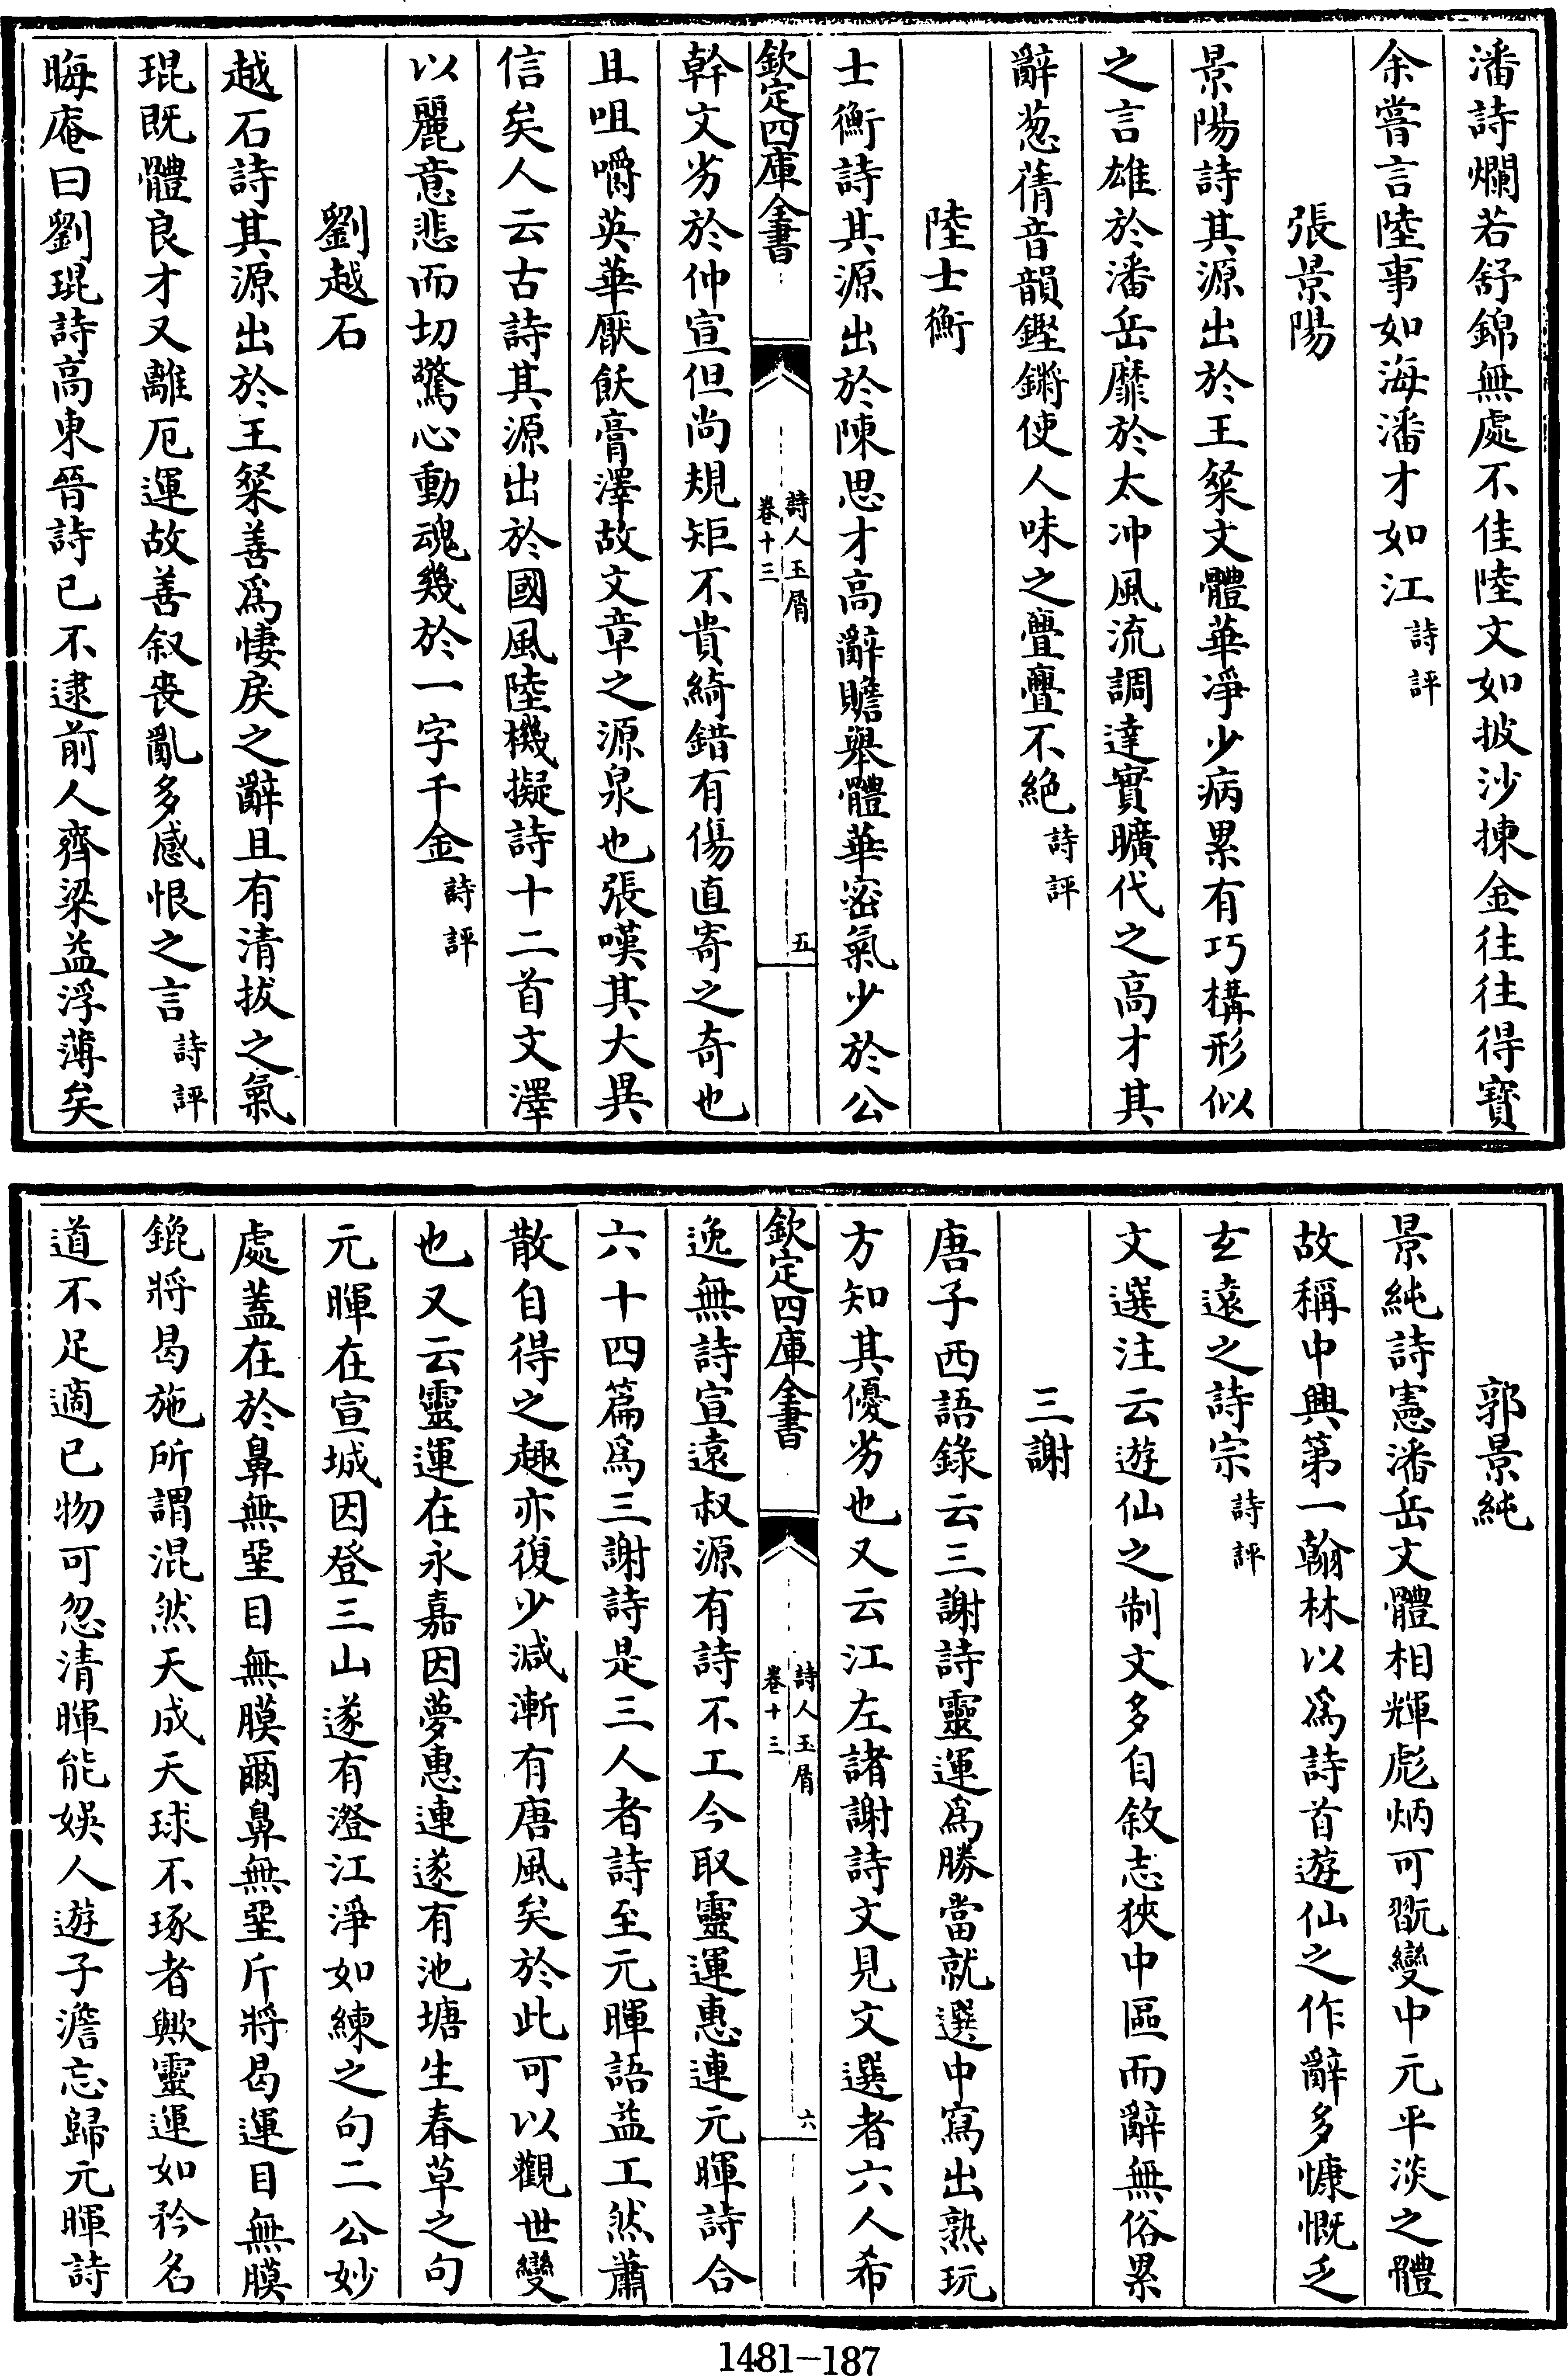 潘詩爛若舒錦無處不佳陸文如披沙揀金往往得寳
余嘗言陸事如海潘才如江詩評
張景陽
景陽詩其源出於王粲文體華凈少病累有巧構形似
之言雄於潘岳靡於太冲風流調達實曠代之高才其
辭葱蒨音韻鏗鏘使人味之亹亹不絶詩評
陸士衡
士衡詩其源出於陳思才高辭贍舉體華密氣少於公
欽定四庫全書
詩人玉屑
卷十三
五
幹文劣於仲宣但尚規矩不貴綺錯有傷直寄之奇也
且咀嚼英華厭飫膏澤故文章之源泉也張嘆其大異
信矣人云古詩其源出於國風陸機擬詩十二首文澤
以麗意悲而切驚心動魂幾於一字千金詩評
劉越石
越石詩其源出於王粲善為悽戾之辭且有清拔之氣
琨既體良才又離厄運故善叙喪亂多感恨之言詩評
晦庵曰劉琨詩高東晉詩已不逮前人齊梁益浮薄矣
郭景純
景純詩憲潘岳文體相輝彪炳可翫變中元平淡之體
故稱中興第一翰林以為詩首遊仙之作辭多慷慨乏
玄遠之詩宗詩評
文選注云遊仙之制文多自敘志狹中區而辭無俗累
三謝
唐子西語錄云三謝詩靈運為勝當就選中寫出熟玩
方知其優劣也又云江左諸謝詩文見文選者六人希
欽定四庫全書
詩人玉屑
卷十三
六
逸無詩宣遠叔源有詩不工今取靈運惠連元暉詩合
六十四篇為三謝詩是三人者詩至元暉語益工然蕭
散自得之趣亦復少減漸有唐風矣於此可以觀世變
也又云靈運在永嘉因夢惠連遂有池塘生春草之句
元暉在宣城因登三山遂有澄江淨如練之句二公妙
處蓋在於鼻無堊目無膜爾鼻無堊斤將曷運目無膜
鎞將曷施所謂混然天成天球不琢者歟靈運如矜名
道不足適已物可忽清暉能娛人遊子澹忘歸元暉詩
1481-187